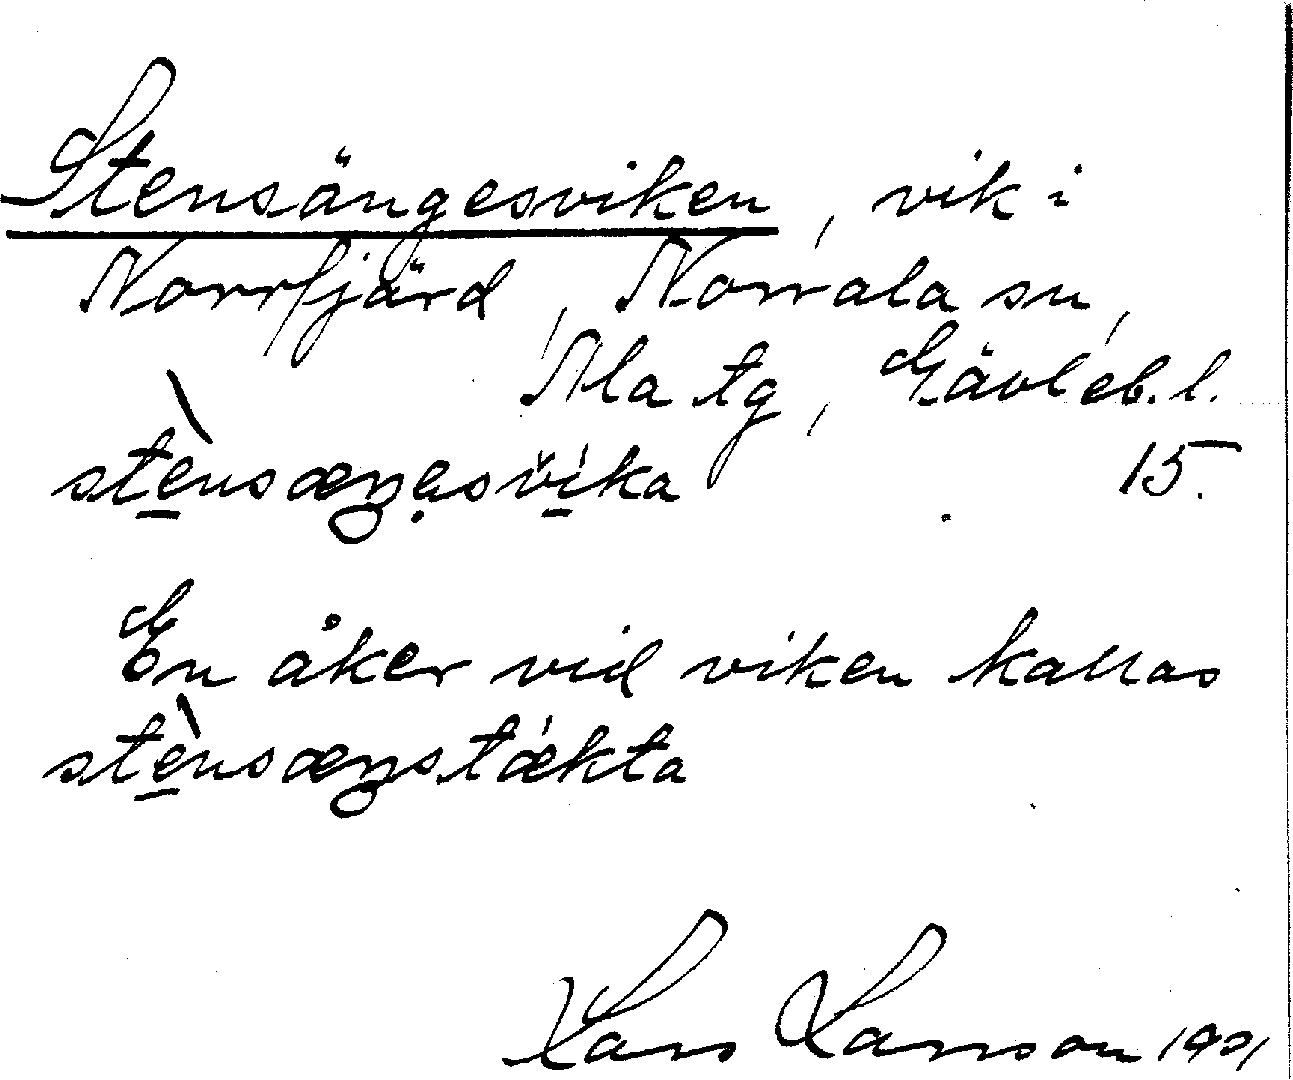 Stensängesviken, vik i
Norrfjärd, Norrala sn,
Ala tg, Gävleb. l.
stènsæŋesvíka 15.
En åker vid viken kallas
stènsæŋstǽkta
Lars Larsson